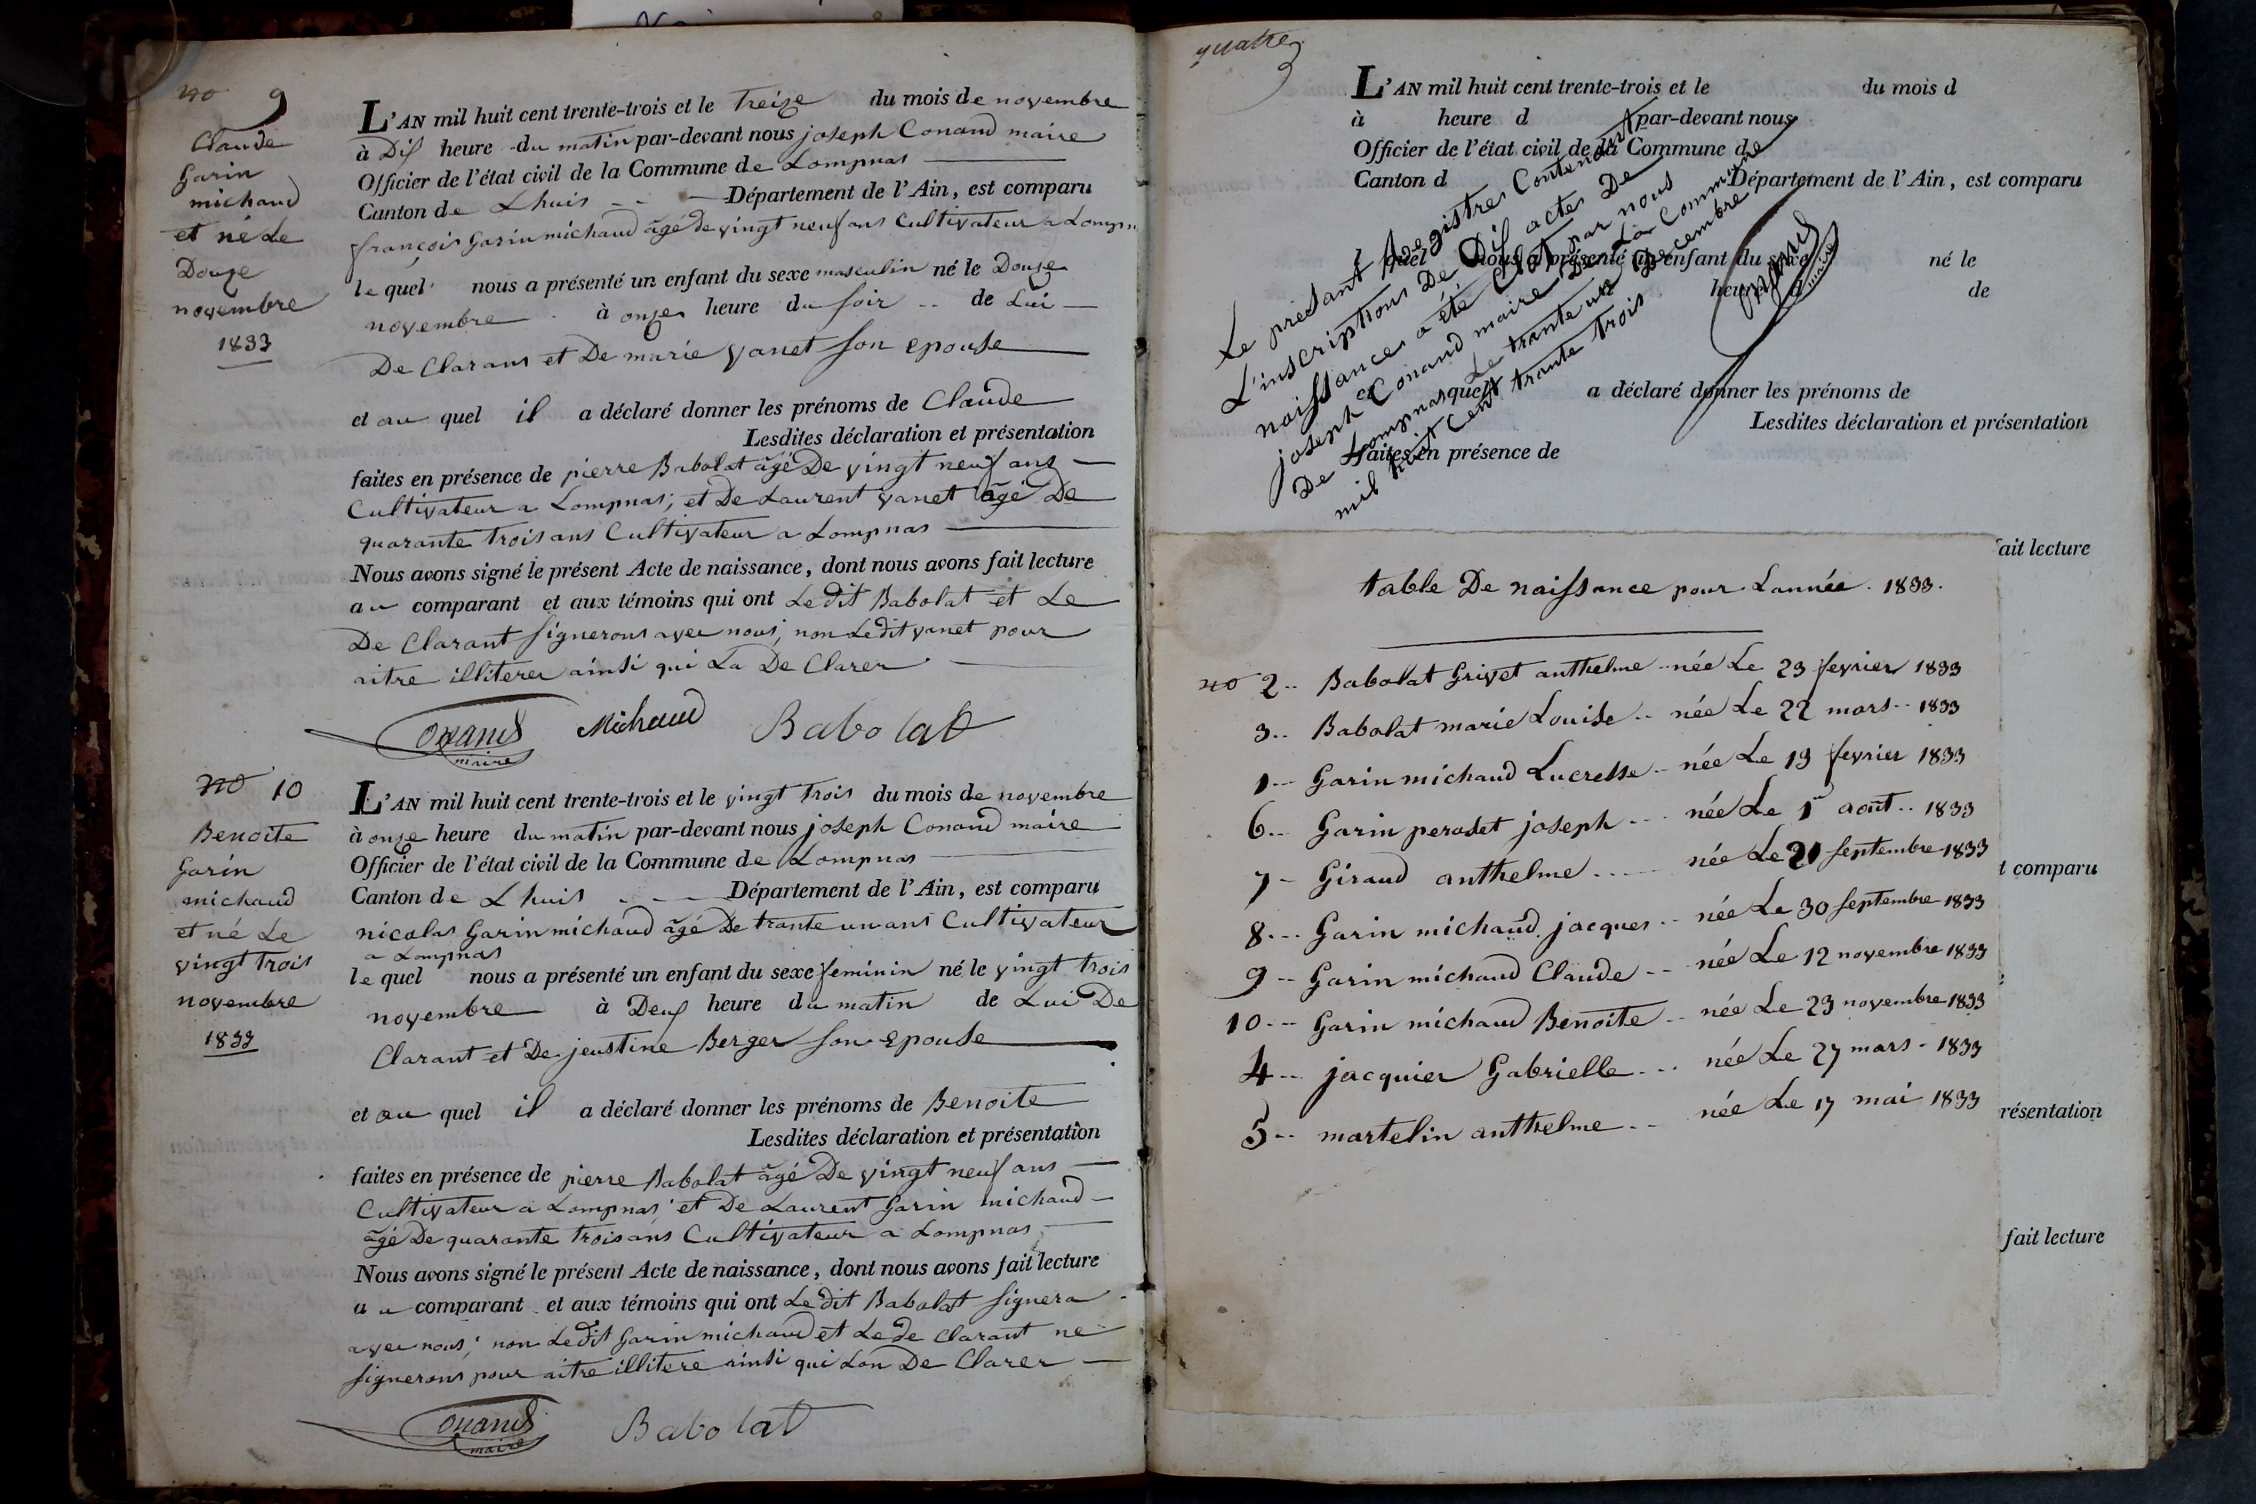 no 9
Claude
Garin
michaud
et né Le
Douze
novembre
1833
L'AN mil huit cent trente-trois et le treize du mois de novembre
à Dix heure du matin par-devant nous joseph Conand maire
Officier de l'état civil de la Commune de Lompnas
Canton de Lhuis Département de l'Ain, est comparu
françois Garin michaud âgé de vingt neuf ans Cultivateur a Lompn
le quel nous a présenté un enfant du sexe masculin né le Douze
novembre à onze heure du soir de Lui
De Clarans et De marie yanet son epouse
et au quel il a déclaré donner les prénoms de Claude
Lesdites déclaration et présentation
faites en présence de pierre Babolat âgé De vingt neuf ans
Cultivateur a Lompnas; et De Laurent yanet âgé De
quarante trois ans Cultivateur a Lompnas
Nous avons signé le présent Acte de naissance, dont nous avons fait lecture
au comparant et aux témoins qui ont Le dit Babolat et Le
De Clarant signerons avec nous; non Le dit yanet pour
aitre illiterer ainsi qui La De Clarer
Conand Michaud Babolat
maire
no 10
Benoite
Garin
michaud
et né Le
vingt trois
novembre
1833
L'AN mil huit cent trente-trois et le vingt trois du mois de novembre
à onze heure du matin par-devant nous joseph Conand maire
Officier de l'état civil de la Commune de Lompnas
Canton de Lhuis Département de l'Ain, est comparu
nicolas Garin michaud âgé De trante un ans Cultivateur
a Lompnas
le quel nous a présenté un enfant du sexe feminin né le vingt trois
novembre à Deux heure du matin de Lui De
Clarant et De jeustine Berger son Epouse
et au quel il a déclaré donner les prénoms de Benoite
Lesdites déclaration et présentation
faites en présence de pierre Babolat âgé De vingt neuf ans
Cultivateur a Lompnas et De Laurent Garin michaud
âgé De quarante trois ans Cultivateur a Lompnas
Nous avons signé le présent Acte de naissance, dont nous avons fait lecture
au comparant et aux témoins qui ont Le dit Babolat signera
avec nous; non Le dit Garin michaud et Le de Clarant ne
signerons pour aitre illitere ainsi qui Lon De Clarer
Conand Babolat
maire
quatre
L'AN mil huit cent trente-trois et le du mois d
à heure d par-devant nous
Officier de l'état civil de la Commune d
Canton d Département de l'Ain, est comparu
quel nous a présenté un enfant du sexe né le
heure d de
et quel a déclaré donner les prénoms de
Lesdites déclaration et présentation
faites en présence de
Le presant Registres Contenant
L'inscriptions De Dix actes De
naissances a été Clot par nous
joseph Conand maire De La Commune
De Lompnas Le trante un Decembre
mil huit cent trante trois
Conand
maire
fait lecture
table De naissance pour Lannée 1833.
no 2 Babolat Grivet anthelme née Le 23 fevrier 1833
3 Babolat marie Louise née Le 22 mars 1833
1 Garin michaud Lucresse née Le 19 fevrier 1833
6 Garin peroset joseph née Le 1er août 1833
7 Giraud anthelme née Le 21 septembre 1833
8 Garin michaud jacques née Le 30 septembre 1833
9 Garin michaud Claude née Le 12 novembre 1833
10 Garin michaud Benoite née Le 23 novembre 1833
4 jacquier Gabrielle née Le 27 mars 1833
5 martelin anthelme née Le 17 mai 1833
t comparu
résentation
fait lecture